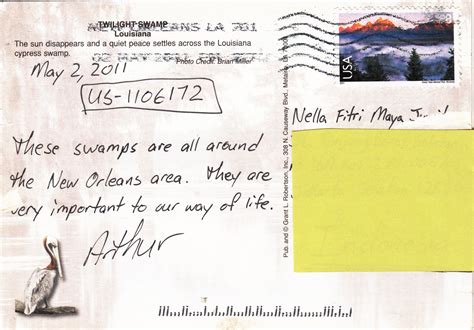 NEW ORLEANS LA 701
TWILIGHT SWAMP
Louisiana
The sun disappears and a quiet peace settles across the Louisiana
cypress swamp.
Photo Credit: Brian Miller
May 2, 2011
US-1106172
USA
Nella Fitri Maya
These swamps are all around
the New Orleans area. They are
very important to our way of life.
Arthur
Pub. and © Grant L. Robertson, Inc., 308 N. Causeway Blvd., Metairie,